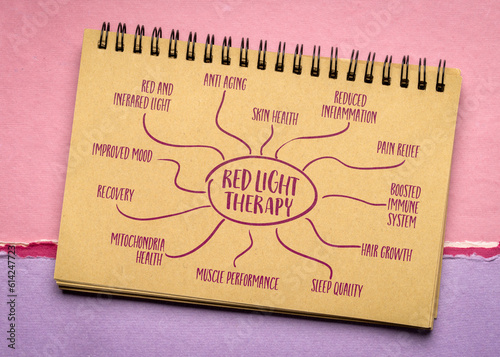 ANTI AGING
RED AND
INFRARED LIGHT
SKIN HEALTH
REDUCED
INFLAMMATION
IMPROVED MOOD
PAIN RELIEF
RED LIGHT
THERAPY
RECOVERY
BOOSTED
IMMUNE
SYSTEM
MITOCHONDRIA
HEALTH
HAIR GROWTH
MUSCLE PERFORMANCE
SLEEP QUALITY
Adobe Stock | #614247723